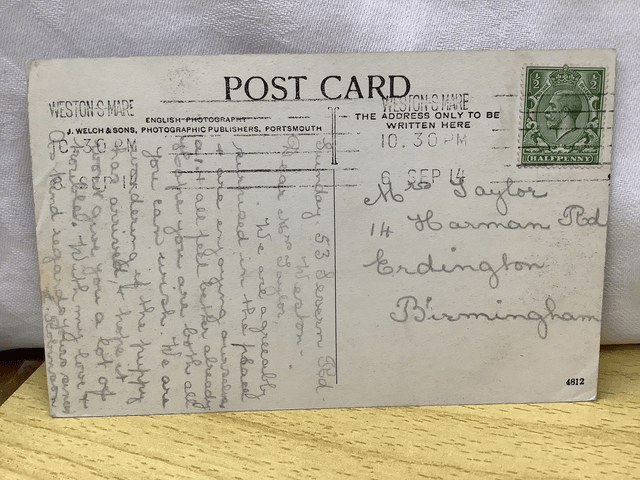 POST CARD
WESTON-S-MARE
10.30 PM
6 SEP 14
ENGLISH PHOTOGRAPHY
J. WELCH & SONS, PHOTOGRAPHIC PUBLISHERS, PORTSMOUTH
THE ADDRESS ONLY TO BE
WRITTEN HERE
WESTON-S-MARE
10.30 PM
6 SEP 14
½ ½
HALFPENNY
Mrs Taylor
14 Harman Rd
Erdington
Birmingham
4612
Sunday. 53 Severn Rd.
Weston-
Dear Mrs Taylor,
We are agreeably
surprised in the place
& are enjoying ourselves
& all feel better already
Hope you are both all
you can wish. We are
wondering if the puppy
has arrived, & hope it
wont give you a lot of
trouble. With my love &
kind regards yours